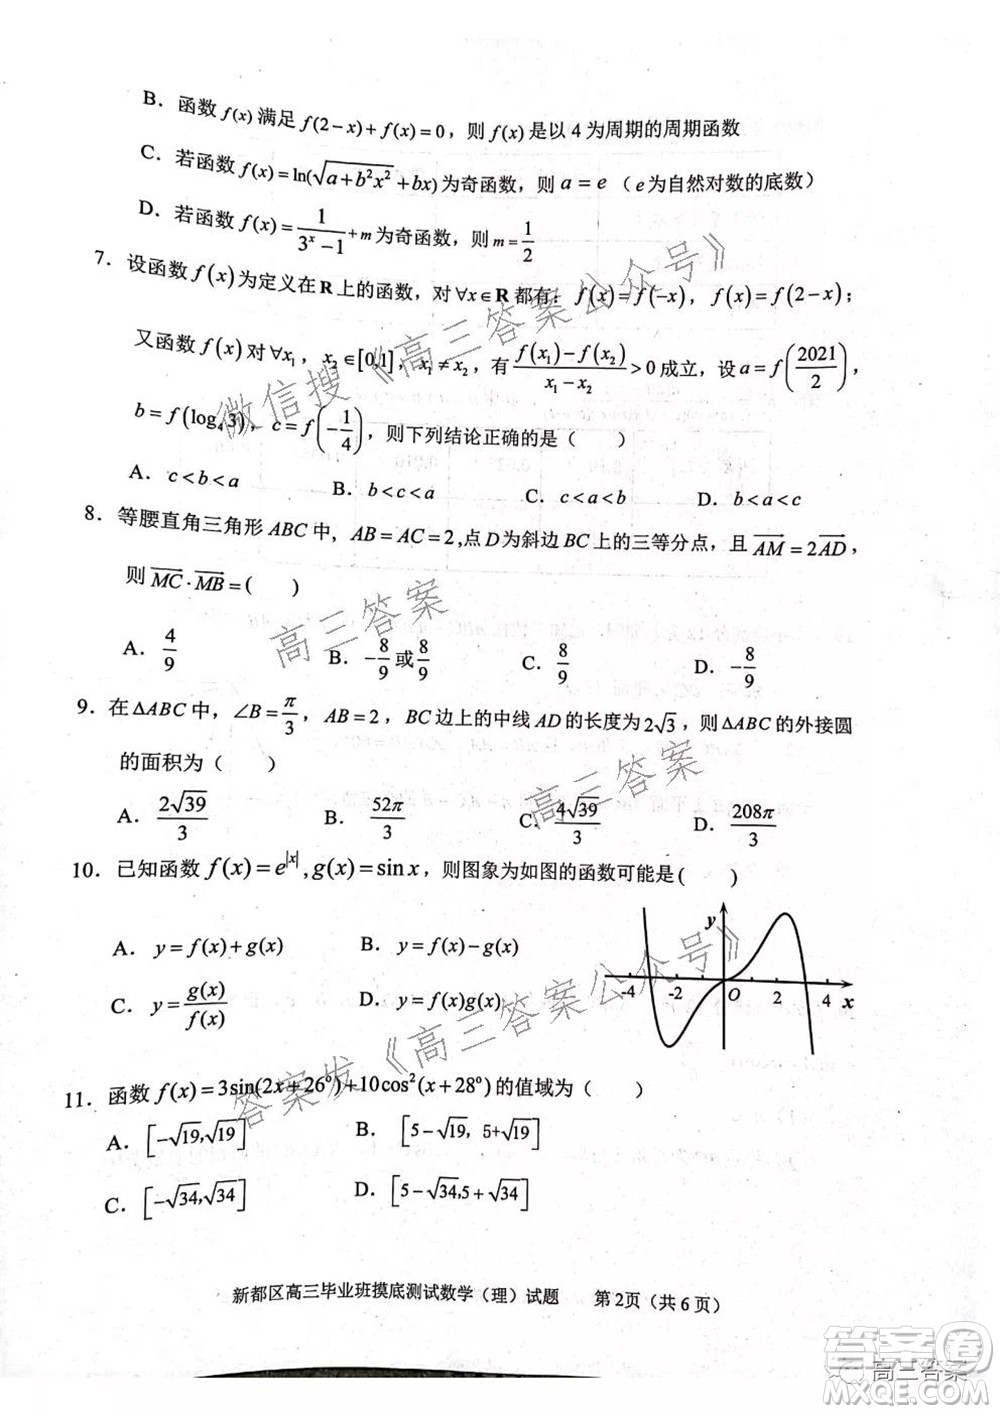 B．函数 f(x) 满足 f(2－x)+f(x)=0，则 f(x) 是以 4 为周期的周期函数
C．若函数 f(x)=ln(√(a+b²x²)+bx) 为奇函数，则 a=e（e为自然对数的底数）
D．若函数 f(x)=1/(3ˣ－1)+m 为奇函数，则 m=1/2
7．设函数 f(x) 为定义在 R 上的函数，对 ∀x∈R 都有：f(x)=f(－x)，f(x)=f(2－x)；
又函数 f(x) 对 ∀x₁，x₂∈[0,1]，x₁≠x₂，有 (f(x₁)－f(x₂))/(x₁－x₂)>0 成立，设 a=f(2021/2)，
b=f(log₄3)，c=f(－1/4)，则下列结论正确的是（　　）
A．c<b<a　B．b<c<a　C．c<a<b　D．b<a<c
8．等腰直角三角形 ABC 中，AB=AC=2，点 D 为斜边 BC 上的三等分点，且 \overrightarrow{AM}=2\overrightarrow{AD}，
则 \overrightarrow{MC}·\overrightarrow{MB}=（　　）
A．4/9　B．－8/9 或 8/9　C．8/9　D．－8/9
9．在 ΔABC 中，∠B=π/3，AB=2，BC 边上的中线 AD 的长度为 2√3，则 ΔABC 的外接圆
的面积为（　　）
A．2√39/3　B．52π/3　C．4√39/3　D．208π/3
10．已知函数 f(x)=e^|x|,g(x)=sin x，则图象为如图的函数可能是（　　）
A．y=f(x)+g(x)　B．y=f(x)－g(x)
C．y=g(x)/f(x)　D．y=f(x)g(x)
y
-4 -2 O 2 4 x
11．函数 f(x)=3sin(2x+26°)+10cos²(x+28°) 的值域为（　　）
A．[－√19,√19]　B．[5－√19，5+√19]
C．[－√34,√34]　D．[5－√34,5+√34]
新都区高三毕业班摸底测试数学（理）试题　第2页（共6页）
微信搜《高三答案公众号》
高三答案
高三答案
答案发《高三答案公众号》
高三答案
答案圈
MXQE.COM